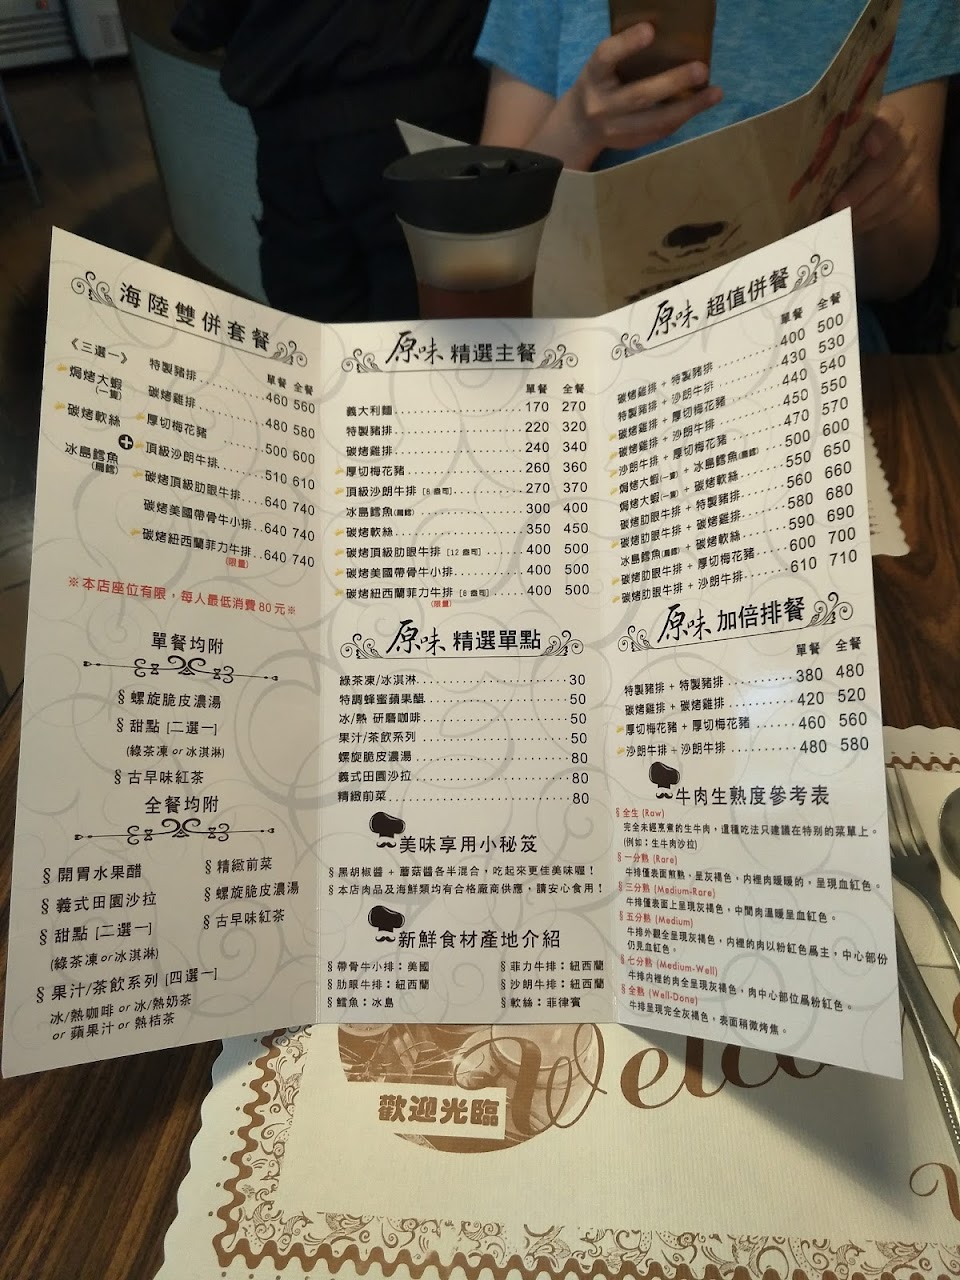 海陸雙併套餐
單餐 全餐
《三選一》
焗烤大蝦
(一隻)
碳烤軟絲
冰島鱈魚
(扁鱈)
+
特製豬排 460 560
碳烤雞排 480 580
厚切梅花豬 500 600
頂級沙朗牛排 510 610
碳烤頂級肋眼牛排 640 740
碳烤美國帶骨牛小排 640 740
碳烤紐西蘭菲力牛排 640 740
(限量)
※本店座位有限，每人最低消費80元※
單餐均附
§ 螺旋脆皮濃湯
§ 甜點 [二選一]
(綠茶凍 or 冰淇淋)
§ 古早味紅茶
全餐均附
§ 開胃水果醋
§ 義式田園沙拉
§ 甜點 [二選一]
(綠茶凍 or 冰淇淋)
§ 果汁/茶飲系列 [四選一]
冰/熱咖啡 or 冰/熱奶茶
or 蘋果汁 or 熱桔茶
§ 精緻前菜
§ 螺旋脆皮濃湯
§ 古早味紅茶
原味 精選主餐
單餐 全餐
義大利麵 170 270
特製豬排 220 320
碳烤雞排 240 340
厚切梅花豬 260 360
頂級沙朗牛排 [8 盎司] 270 370
冰島鱈魚(扁鱈) 300 400
碳烤軟絲 350 450
碳烤頂級肋眼牛排 [12 盎司] 400 500
碳烤美國帶骨牛小排 400 500
碳烤紐西蘭菲力牛排 [8 盎司] 400 500
(限量)
原味 精選單點
綠茶凍/冰淇淋 30
特調蜂蜜蘋果醋 50
冰/熱 研磨咖啡 50
果汁/茶飲系列 50
螺旋脆皮濃湯 80
義式田園沙拉 80
精緻前菜 80
美味享用小秘笈
§ 黑胡椒醬 + 蘑菇醬各半混合，吃起來更佳美味喔！
§ 本店肉品及海鮮類均有合格廠商供應，請安心食用！
新鮮食材產地介紹
§ 帶骨牛小排：美國
§ 肋眼牛排：紐西蘭
§ 鱈魚：冰島
§ 菲力牛排：紐西蘭
§ 沙朗牛排：紐西蘭
§ 軟絲：菲律賓
原味 超值併餐
單餐 全餐
碳烤雞排 + 特製豬排 400 500
特製豬排 + 沙朗牛排 430 530
碳烤雞排 + 厚切梅花豬 440 540
碳烤雞排 + 沙朗牛排 450 550
沙朗牛排 + 厚切梅花豬 470 570
焗烤大蝦(一隻) + 冰島鱈魚(扁鱈) 500 600
焗烤大蝦(一隻) + 碳烤軟絲 550 650
碳烤肋眼牛排 + 特製豬排 560 660
碳烤肋眼牛排 + 碳烤雞排 580 680
冰島鱈魚(扁鱈) + 碳烤軟絲 590 690
碳烤肋眼牛排 + 厚切梅花豬 600 700
碳烤肋眼牛排 + 沙朗牛排 610 710
原味 加倍排餐
單餐 全餐
特製豬排 + 特製豬排 380 480
碳烤雞排 + 碳烤雞排 420 520
厚切梅花豬 + 厚切梅花豬 460 560
沙朗牛排 + 沙朗牛排 480 580
牛肉生熟度參考表
§ 全生 (Raw)
完全未經烹煮的生牛肉，這種吃法只建議在特別的菜單上。
(例如：生牛肉沙拉)
§ 一分熟 (Rare)
牛排僅表面煎熟，呈灰褐色，內裡肉暖暖的，呈現血紅色。
§ 三分熟 (Medium-Rare)
牛排僅表面上呈現灰褐色，中間肉溫暖呈血紅色。
§ 五分熟 (Medium)
牛排外觀全呈現灰褐色，內裡的肉以粉紅色為主，中心部份
仍見血紅色。
§ 七分熟 (Medium-Well)
牛排內裡的肉全呈現灰褐色，肉中心部位為粉紅色。
§ 全熟 (Well-Done)
牛排呈現完全灰褐色，表面稍微烤焦。
Welco
歡迎光臨